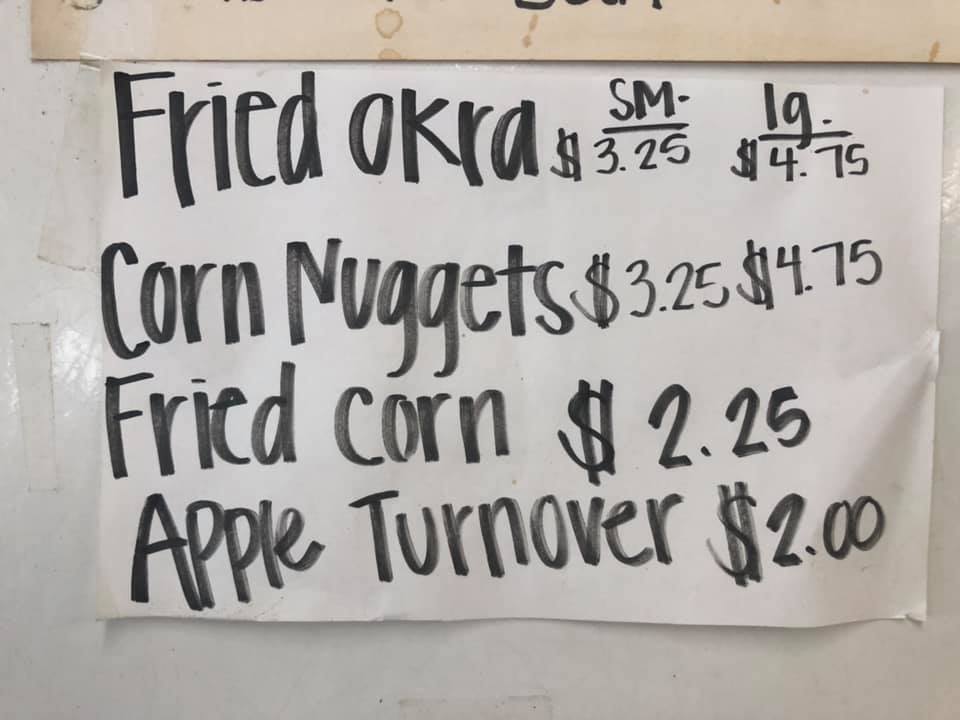 Fried okra SM. $3.25 lg. $4.75
Corn Nuggets $3.25 $4.75
Fried corn $2.25
Apple Turnover $2.00